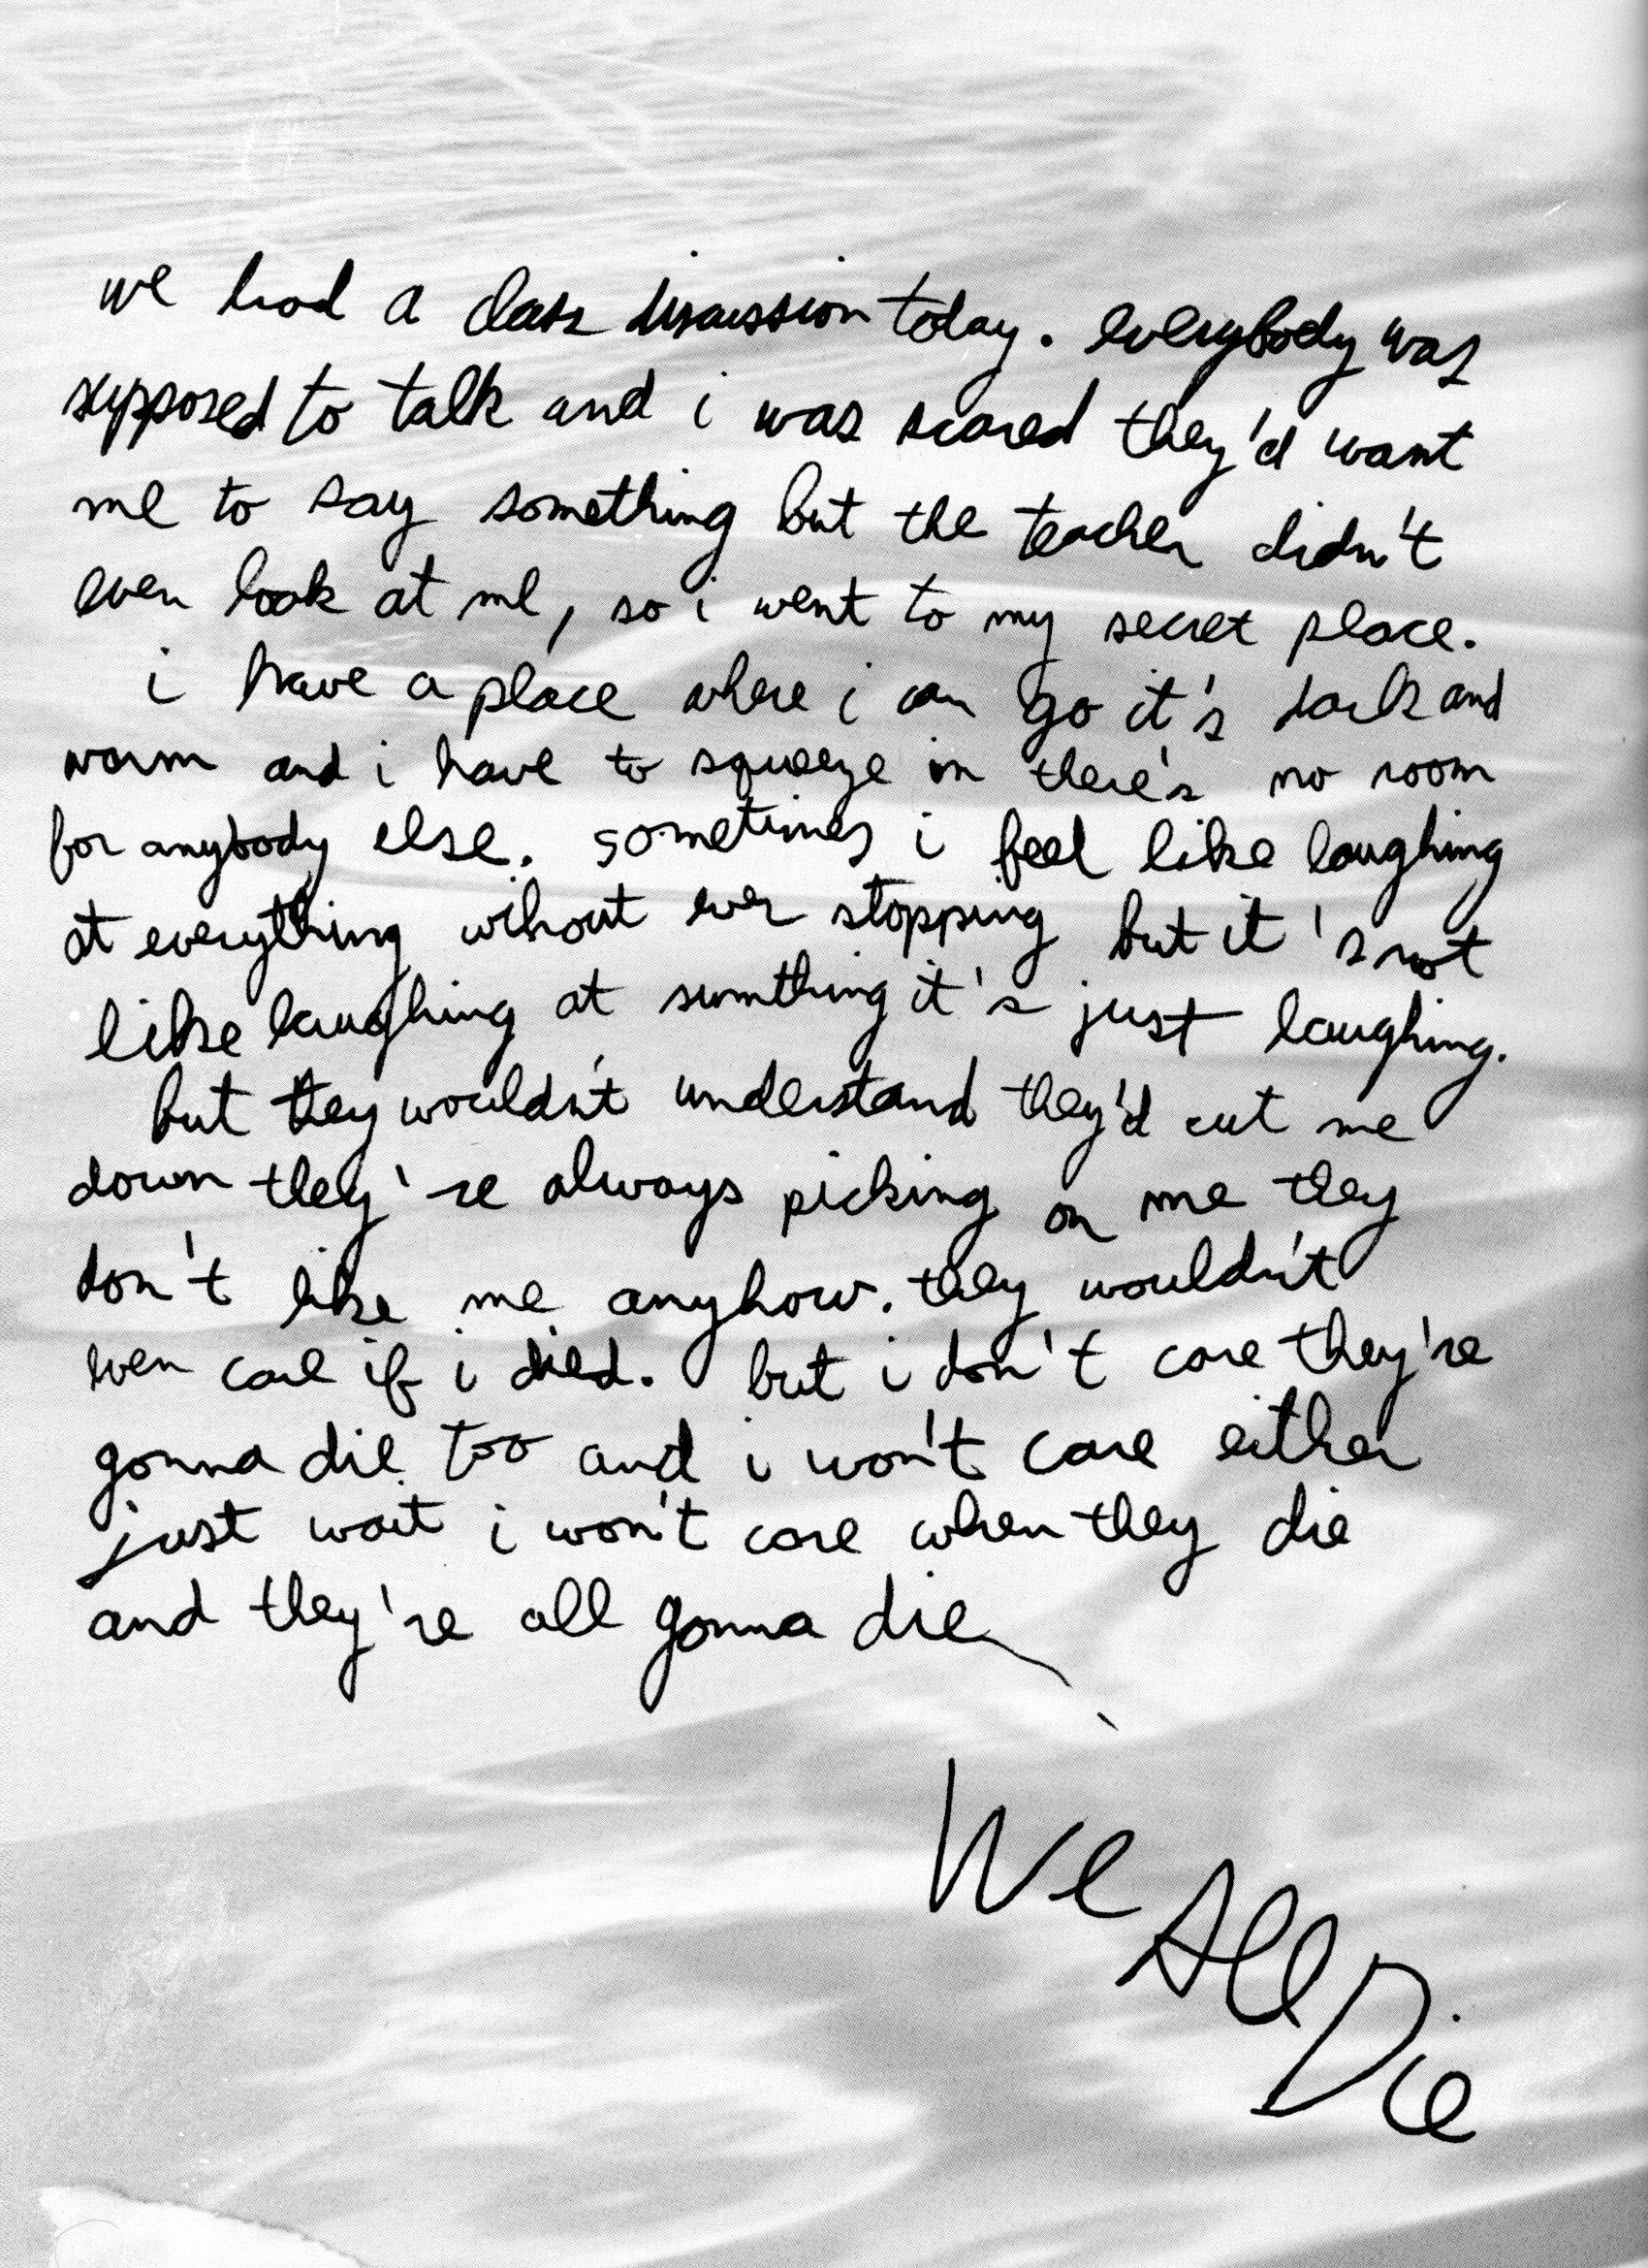 we had a class discussion today. everybody was
supposed to talk and i was scared they'd want
me to say something but the teacher didn't
even look at me, so i went to my secret place.
i have a place where i can go it's dark and
warm and i have to squeeze in there's no room
for anybody else. sometimes i feel like laughing
at everything wihout ever stopping but it's not
like laughing at sumthing it's just laughing.
but they wouldn't understand they'd cut me
down they're always picking on me they
don't like me anyhow. they wouldn't
even care if i died. but i don't care they're
gonna die too and i won't care either
just wait i won't care when they die
and they're all gonna die
We
All
Die